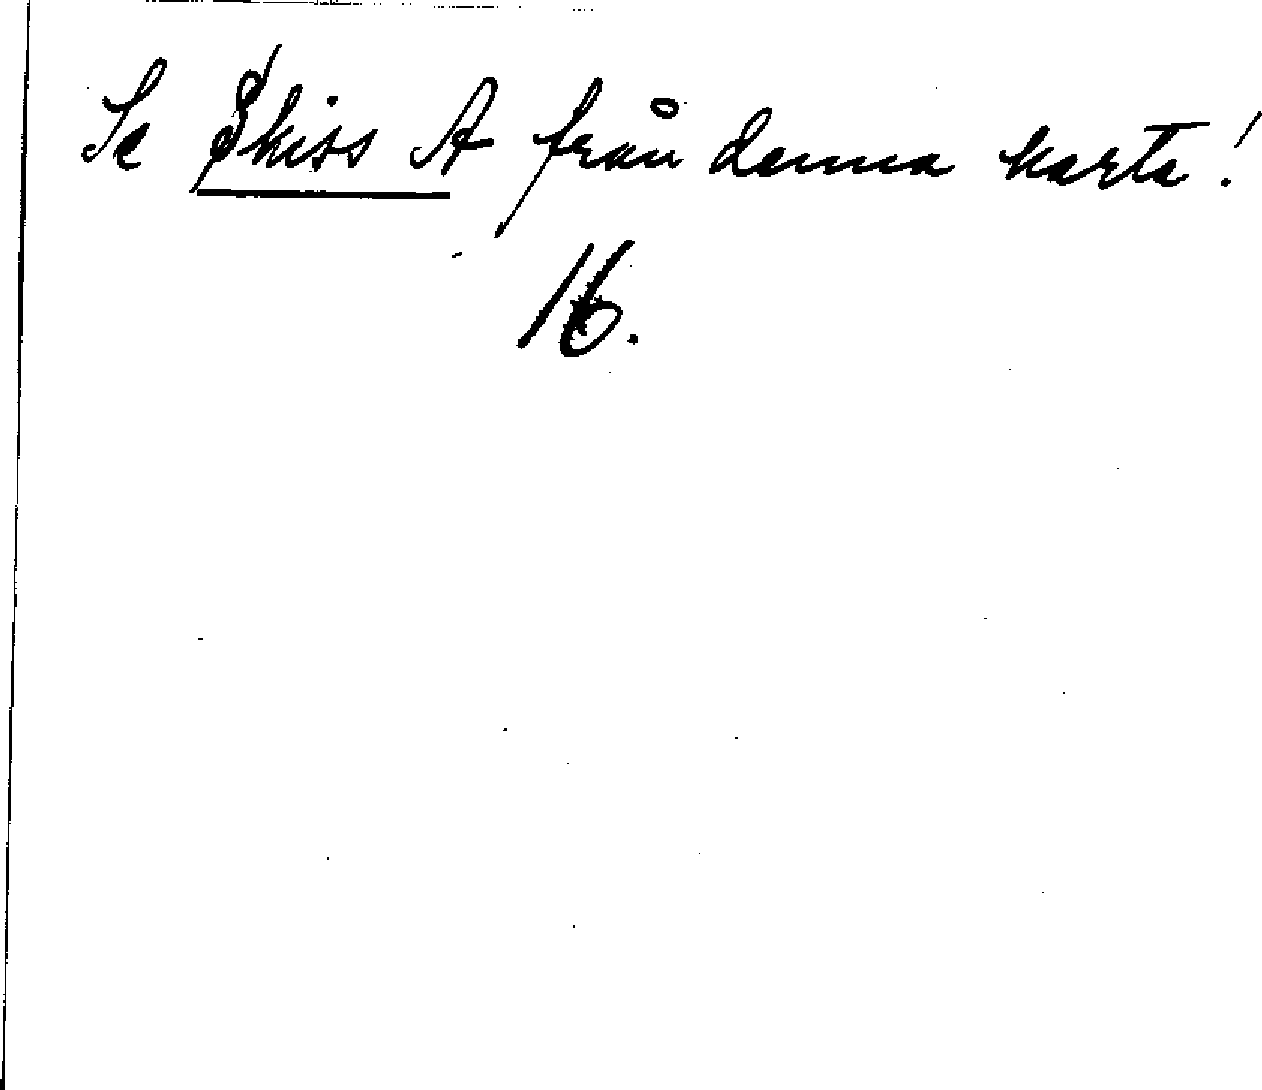 Se Skiss A från denna karta!
16.